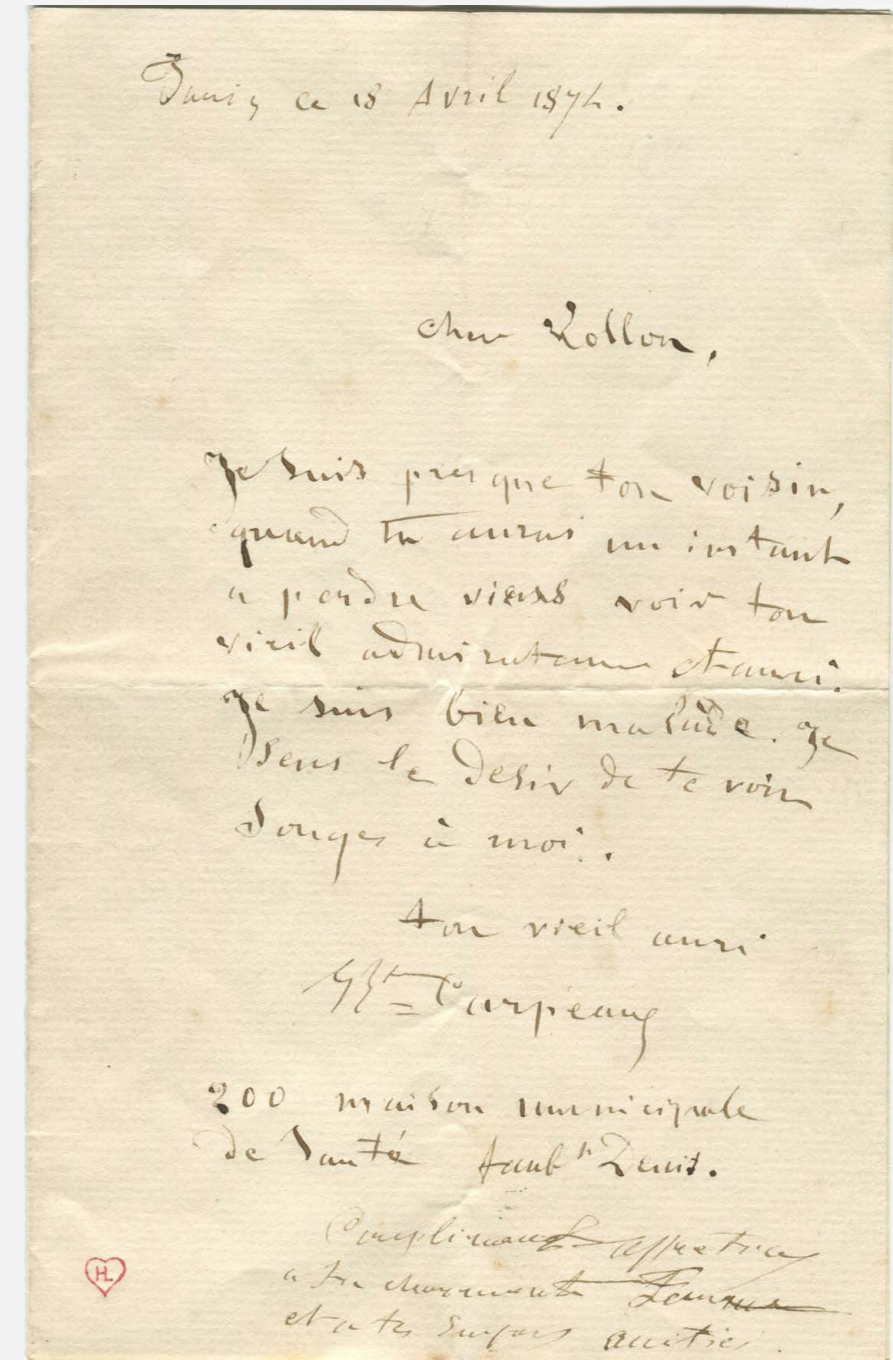 Paris ce 18 Avril 1874.
cher Rollon,
Je suis presque ton voisin,
quand tu auras un instant
a perdre viens voir ton
vieil admirateur et ami.
Je suis bien malade. Je
sens le desir de te voir
Songes à moi.
ton vieil ami
Bte Carpeaux
200 maison municipale
de Santé faubg St Denis.
Compliments affectueux
a ta charmante Femme
et a tes Enfants amitiés.
HL